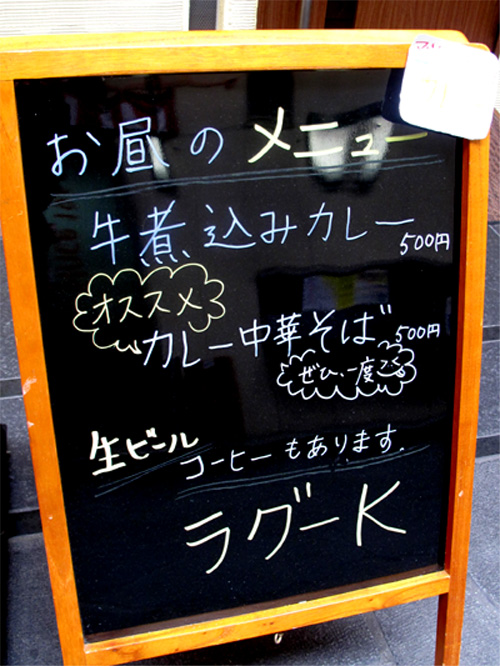 お昼のメニュー
牛煮込みカレー
500円
オススメ
カレー中華そば 500円
ぜひ、一度
生ビール
コーヒーもあります。
ラグーK